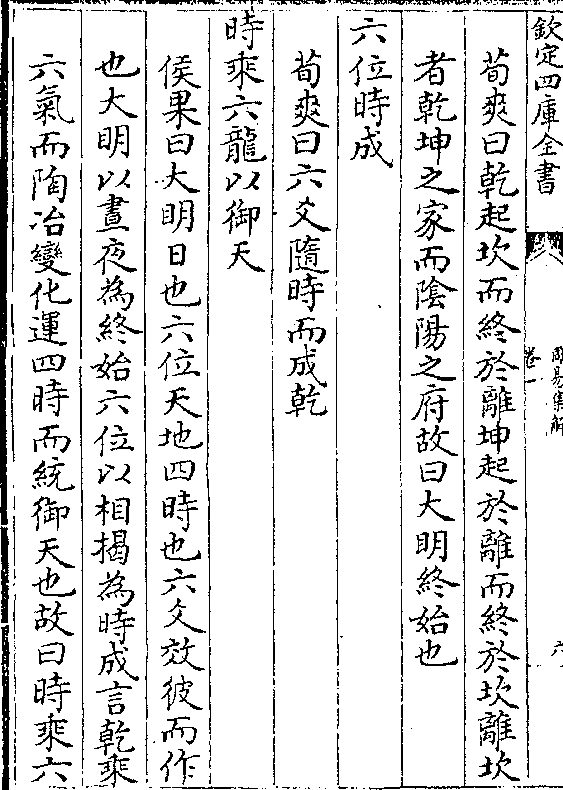 欽定四庫全書
周易集解
卷一
六
荀爽曰乾起坎而終於離坤起於離而終於坎離坎
者乾坤之家而陰陽之府故曰大明終始也
六位時成
荀爽曰六爻隨時而成乾
時乘六龍以御天
侯果曰大明日也六位天地四時也六爻效彼而作
也大明以晝夜為終始六位以相揭為時成言乾乘
六氣而陶冶變化運四時而統御天也故曰時乘六